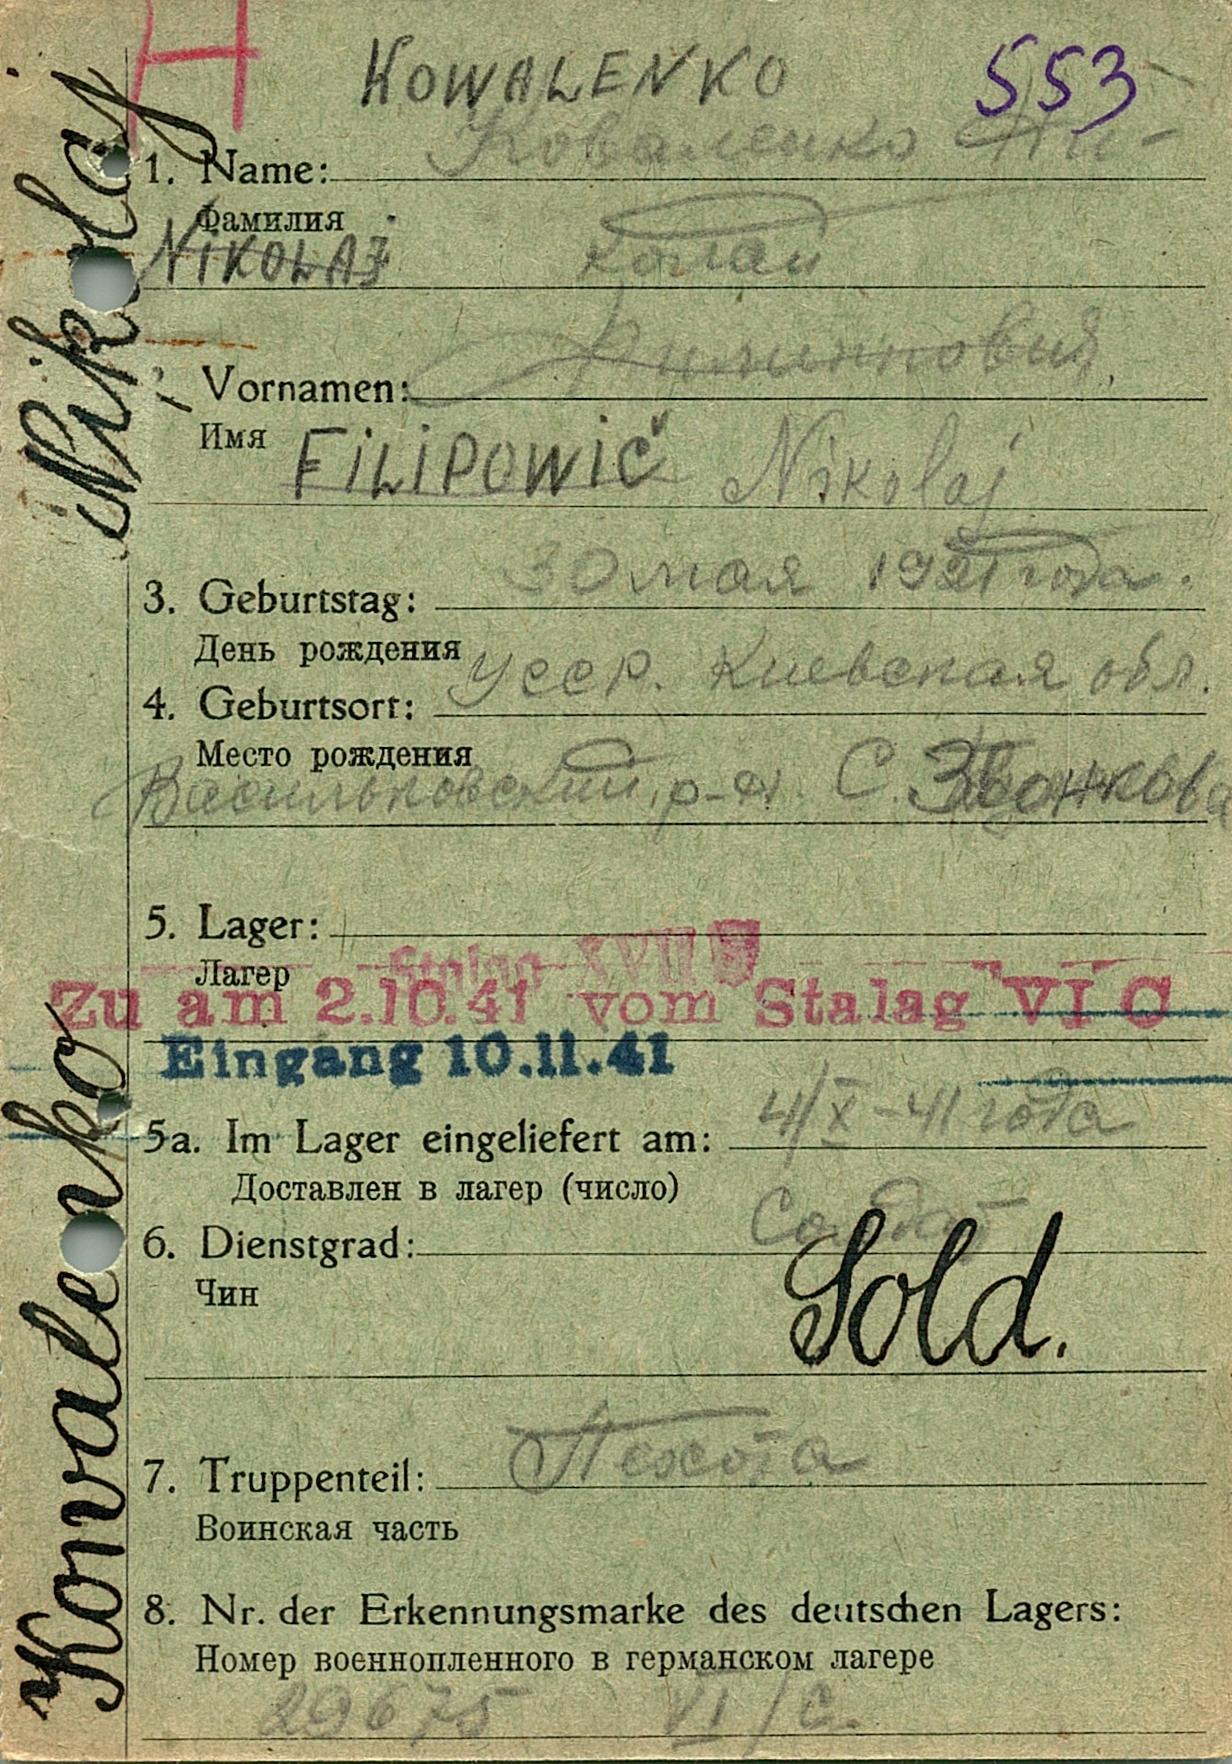 H
KOWALENKO 553
Коваленко Ни-
1. Name:
Фамилия
NIKOLAJ колай
Филиппович
2. Vornamen:
Имя
FILIPOWIČ Nikolaj
30 мая 1921 года.
3. Geburtstag:
День рождения
УССР. Киевская обл.
4. Geburtsort:
Место рождения
Васильковский р-н. С. Звонкова
5. Lager:
Лагер
Stalag XVII B
Zu am 2.10.41 vom Stalag VI C
Eingang 10.11.41
4/X-41 года
5a. Im Lager eingeliefert am:
Доставлен в лагер (число)
Солдат
6. Dienstgrad:
Чин
Sold.
Пехота
7. Truppenteil:
Воинская часть
8. Nr. der Erkennungsmarke des deutschen Lagers:
Номер военнопленного в германском лагере
29675 VI/C.
Kowalenko Nikolaj